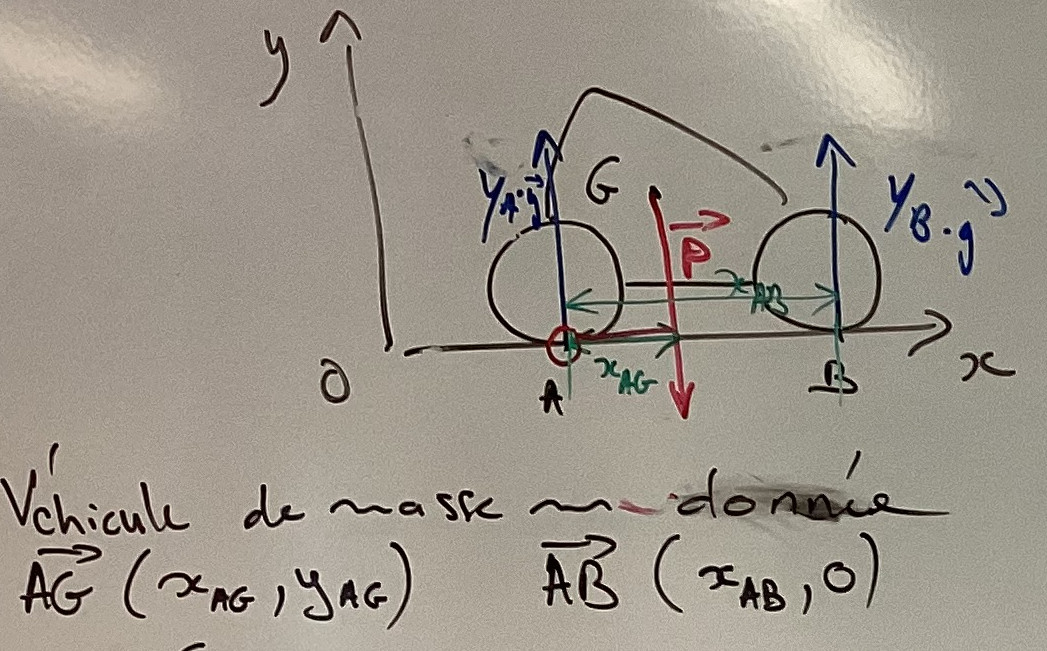 y
G
Y_A.g⃗
P⃗
Y_B.g⃗
x_AB
x_AG
O
A
B
x
Véhicule de masse m donnée
A͞G⃗ (x_AG, y_AG) A͞B⃗ (x_AB, 0)